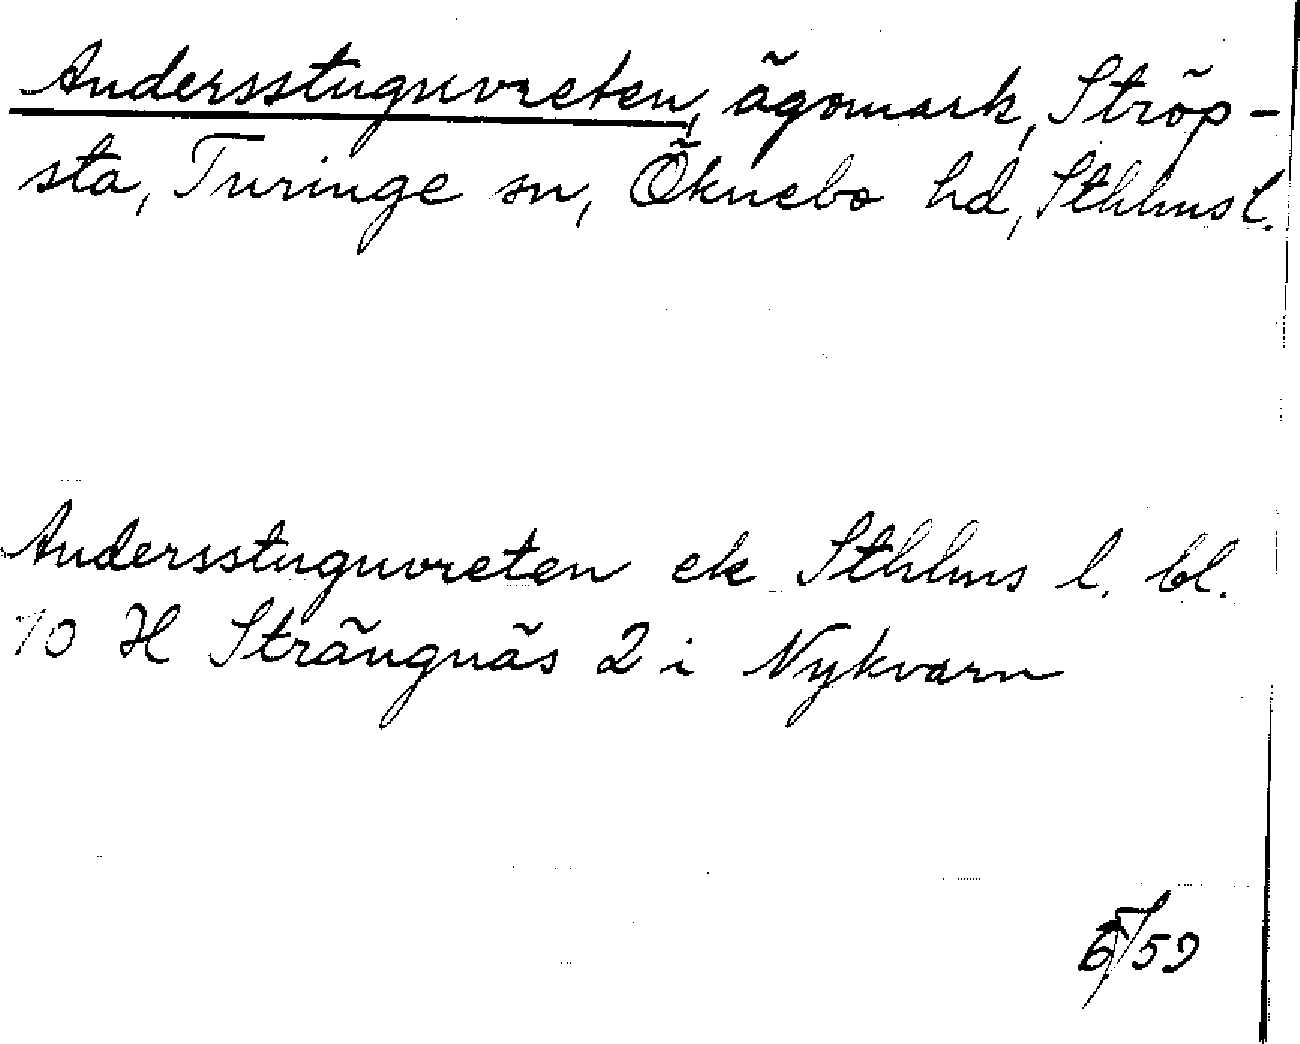 Andersstuguvreten, ägomark, Ströp-
sta, Turinge sn, Öknebo hd, Sthlms l.
Andersstuguvreten ek Sthlms l. bl.
10 H Strängnäs 2 i Nykvarn
/59